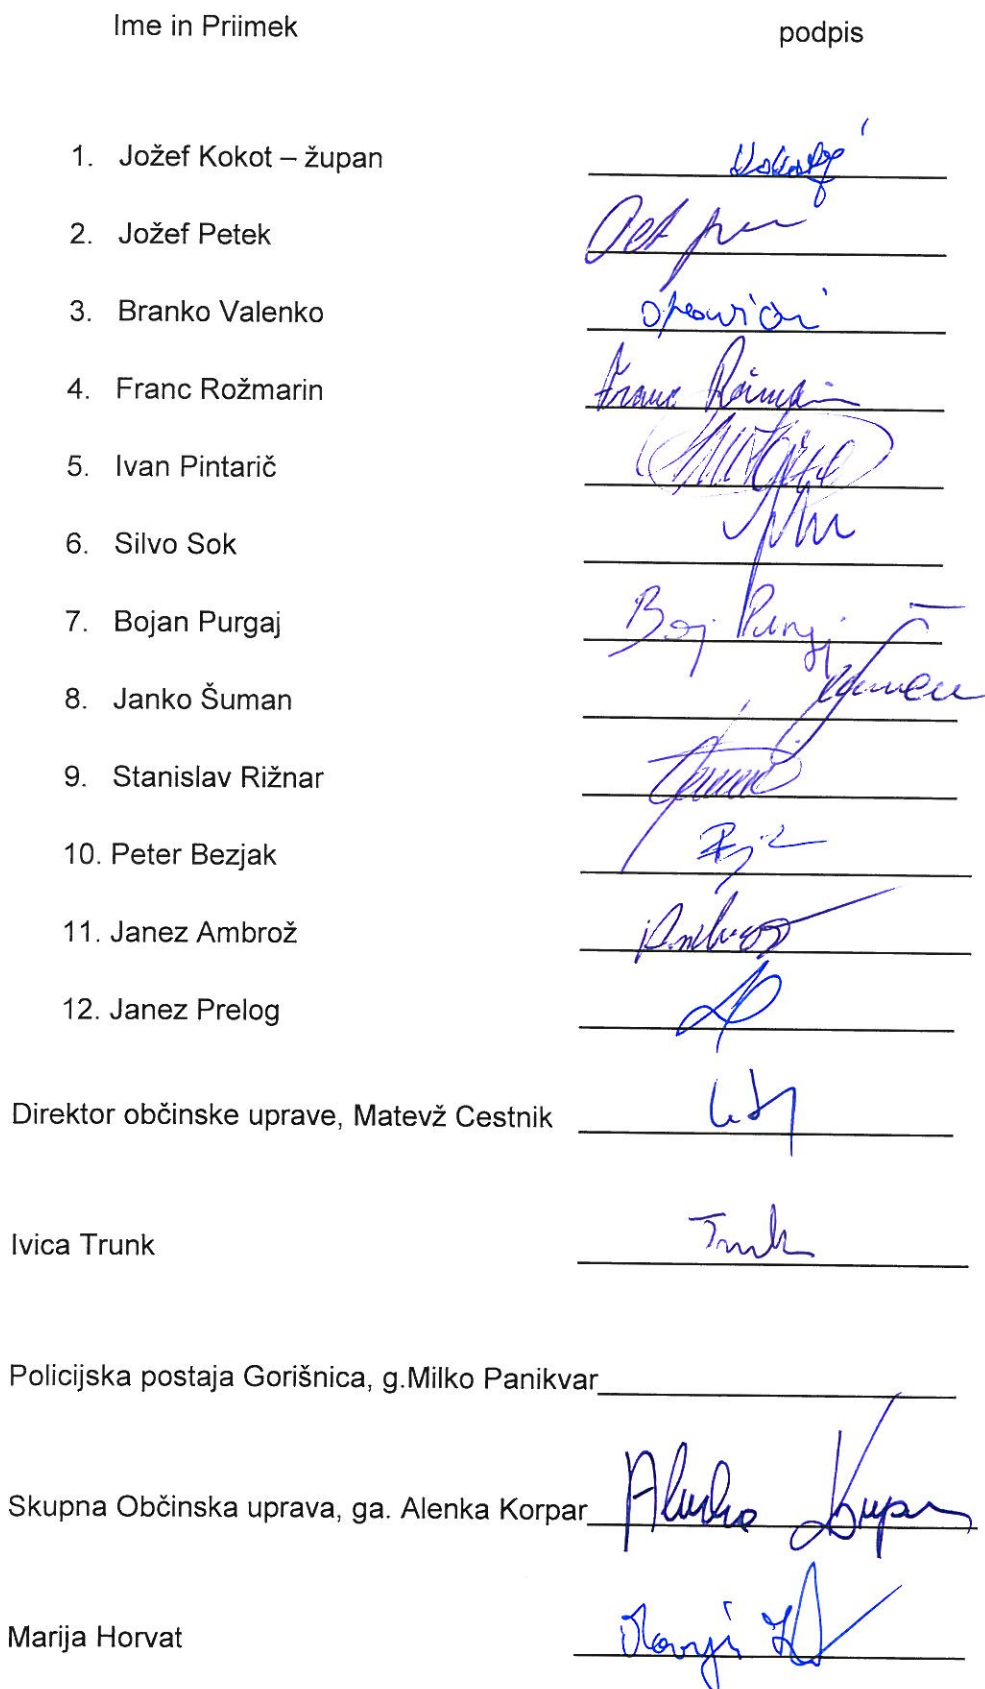 Ime in Priimek podpis
1. Jožef Kokot – župan
2. Jožef Petek
3. Branko Valenko opravičil
4. Franc Rožmarin Franc Rožmarin
5. Ivan Pintarič
6. Silvo Sok
7. Bojan Purgaj Boj Purgaj
8. Janko Šuman
9. Stanislav Rižnar
10. Peter Bezjak
11. Janez Ambrož Ambrož
12. Janez Prelog
Direktor občinske uprave, Matevž Cestnik
Ivica Trunk Trunk
Policijska postaja Gorišnica, g.Milko Panikvar
Skupna Občinska uprava, ga. Alenka Korpar Alenka Korpar
Marija Horvat Marija